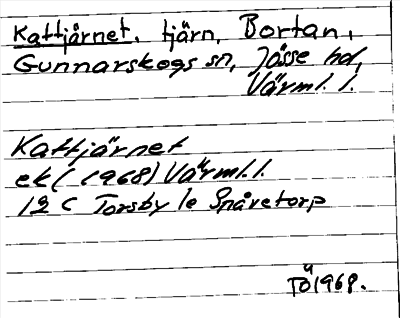 Kattjärnet, tjärn, Bortan,
Gunnarskogs sn, Jösse hd,
Värml. l.
Kattjärnet
ek (1968) Värml. l.
12 C Torsby le Spåretorp
TÖ 1968.